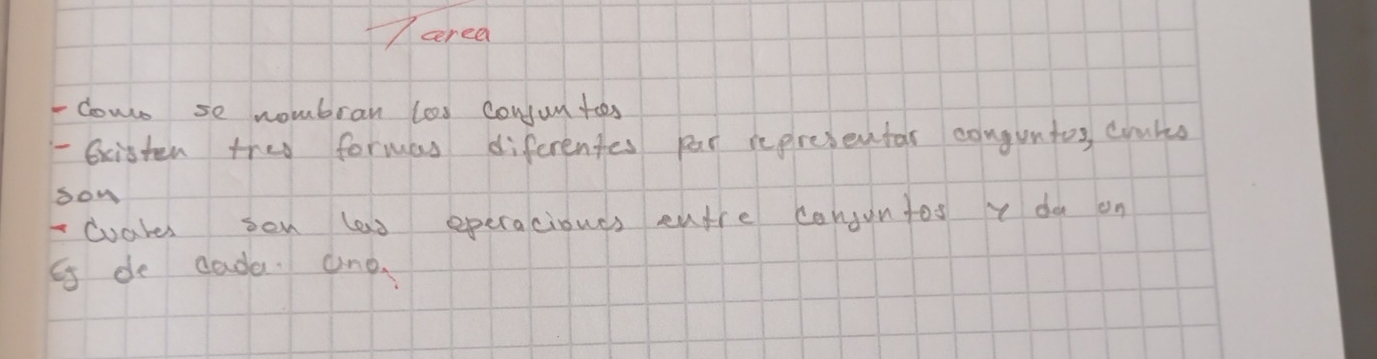 Tarea
- Como se nombran los conjuntos
- Existen tres formas diferentes par representar conguntos, cuales
son
- Cuales son las operaciones entre conjuntos y da un
Ej de cada uno.